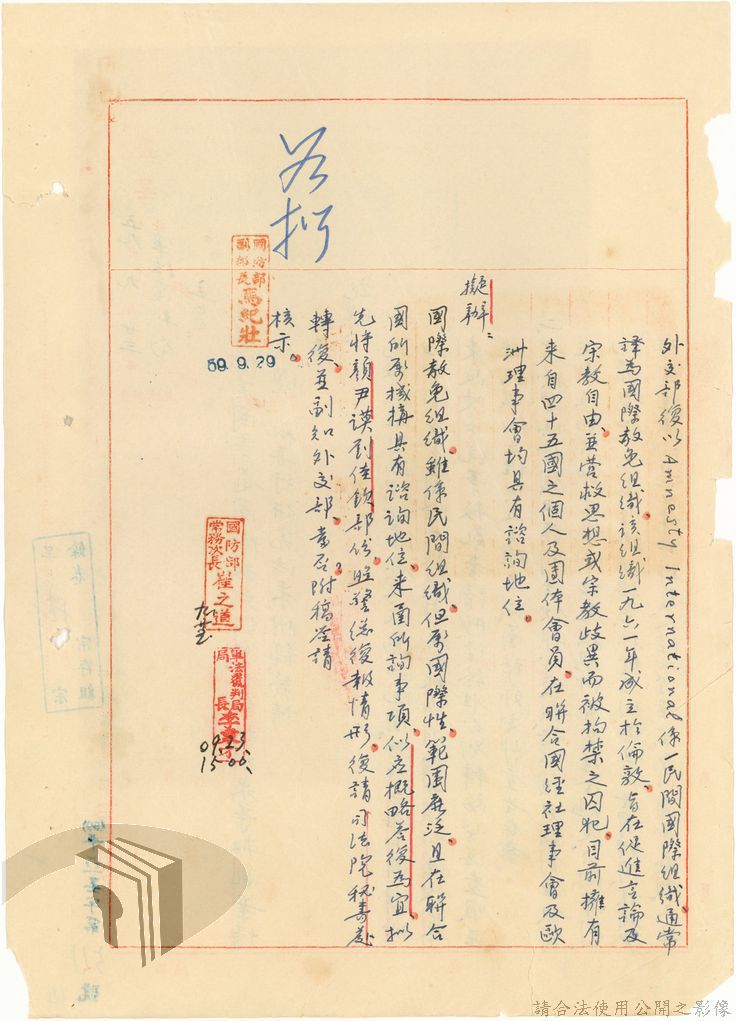 外交部復以Amnesty International係一民間國際組織,通常
譯為國際赦免組織,該組織一九六一年成立於倫敦,旨在促進言論及
宗教自由,並營救思想或宗教歧異而被拘禁之囚犯,目前擁有
來自四十五國之個人及團体會員,在聯合國經社理事會及歐
洲理事會均具有諮詢地位。
擬辦:
國際赦免組織雖係民間組織,但屬國際性,範圍廣泛,且在聯合
國所屬機構具有諮詢地位,來函所詢事項,似應概略答復為宜,擬
先將顏尹謨、劉佳欽部份,照警總復報情形,復請司法院秘書處
轉復,並副知外交部,當否?附稿簽請
核示。
若擬
國防部
副部長
馬紀壯
59.9.29
國防部
常務次長
崔之道
軍法覆判局
局長
0923
1500
請合法使用公開之影像